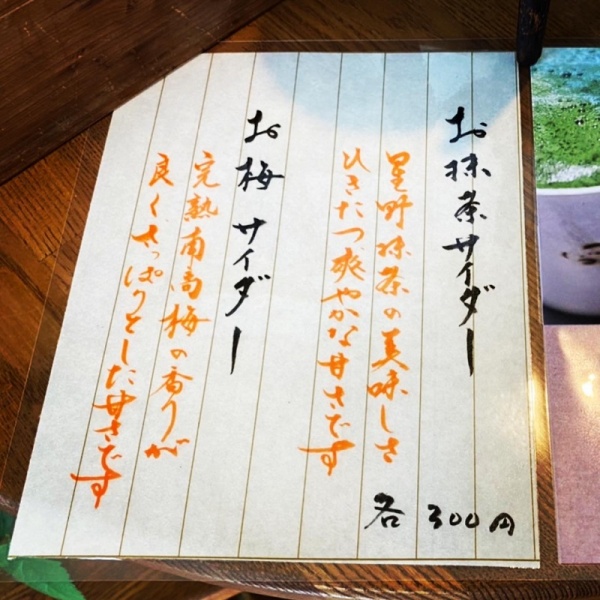 お抹茶サイダー
星野抹茶の美味しさ
ひきたつ爽やかな甘さです
お梅サイダー
完熟南高梅の香りが
良くさっぱりとした甘さです
各300円